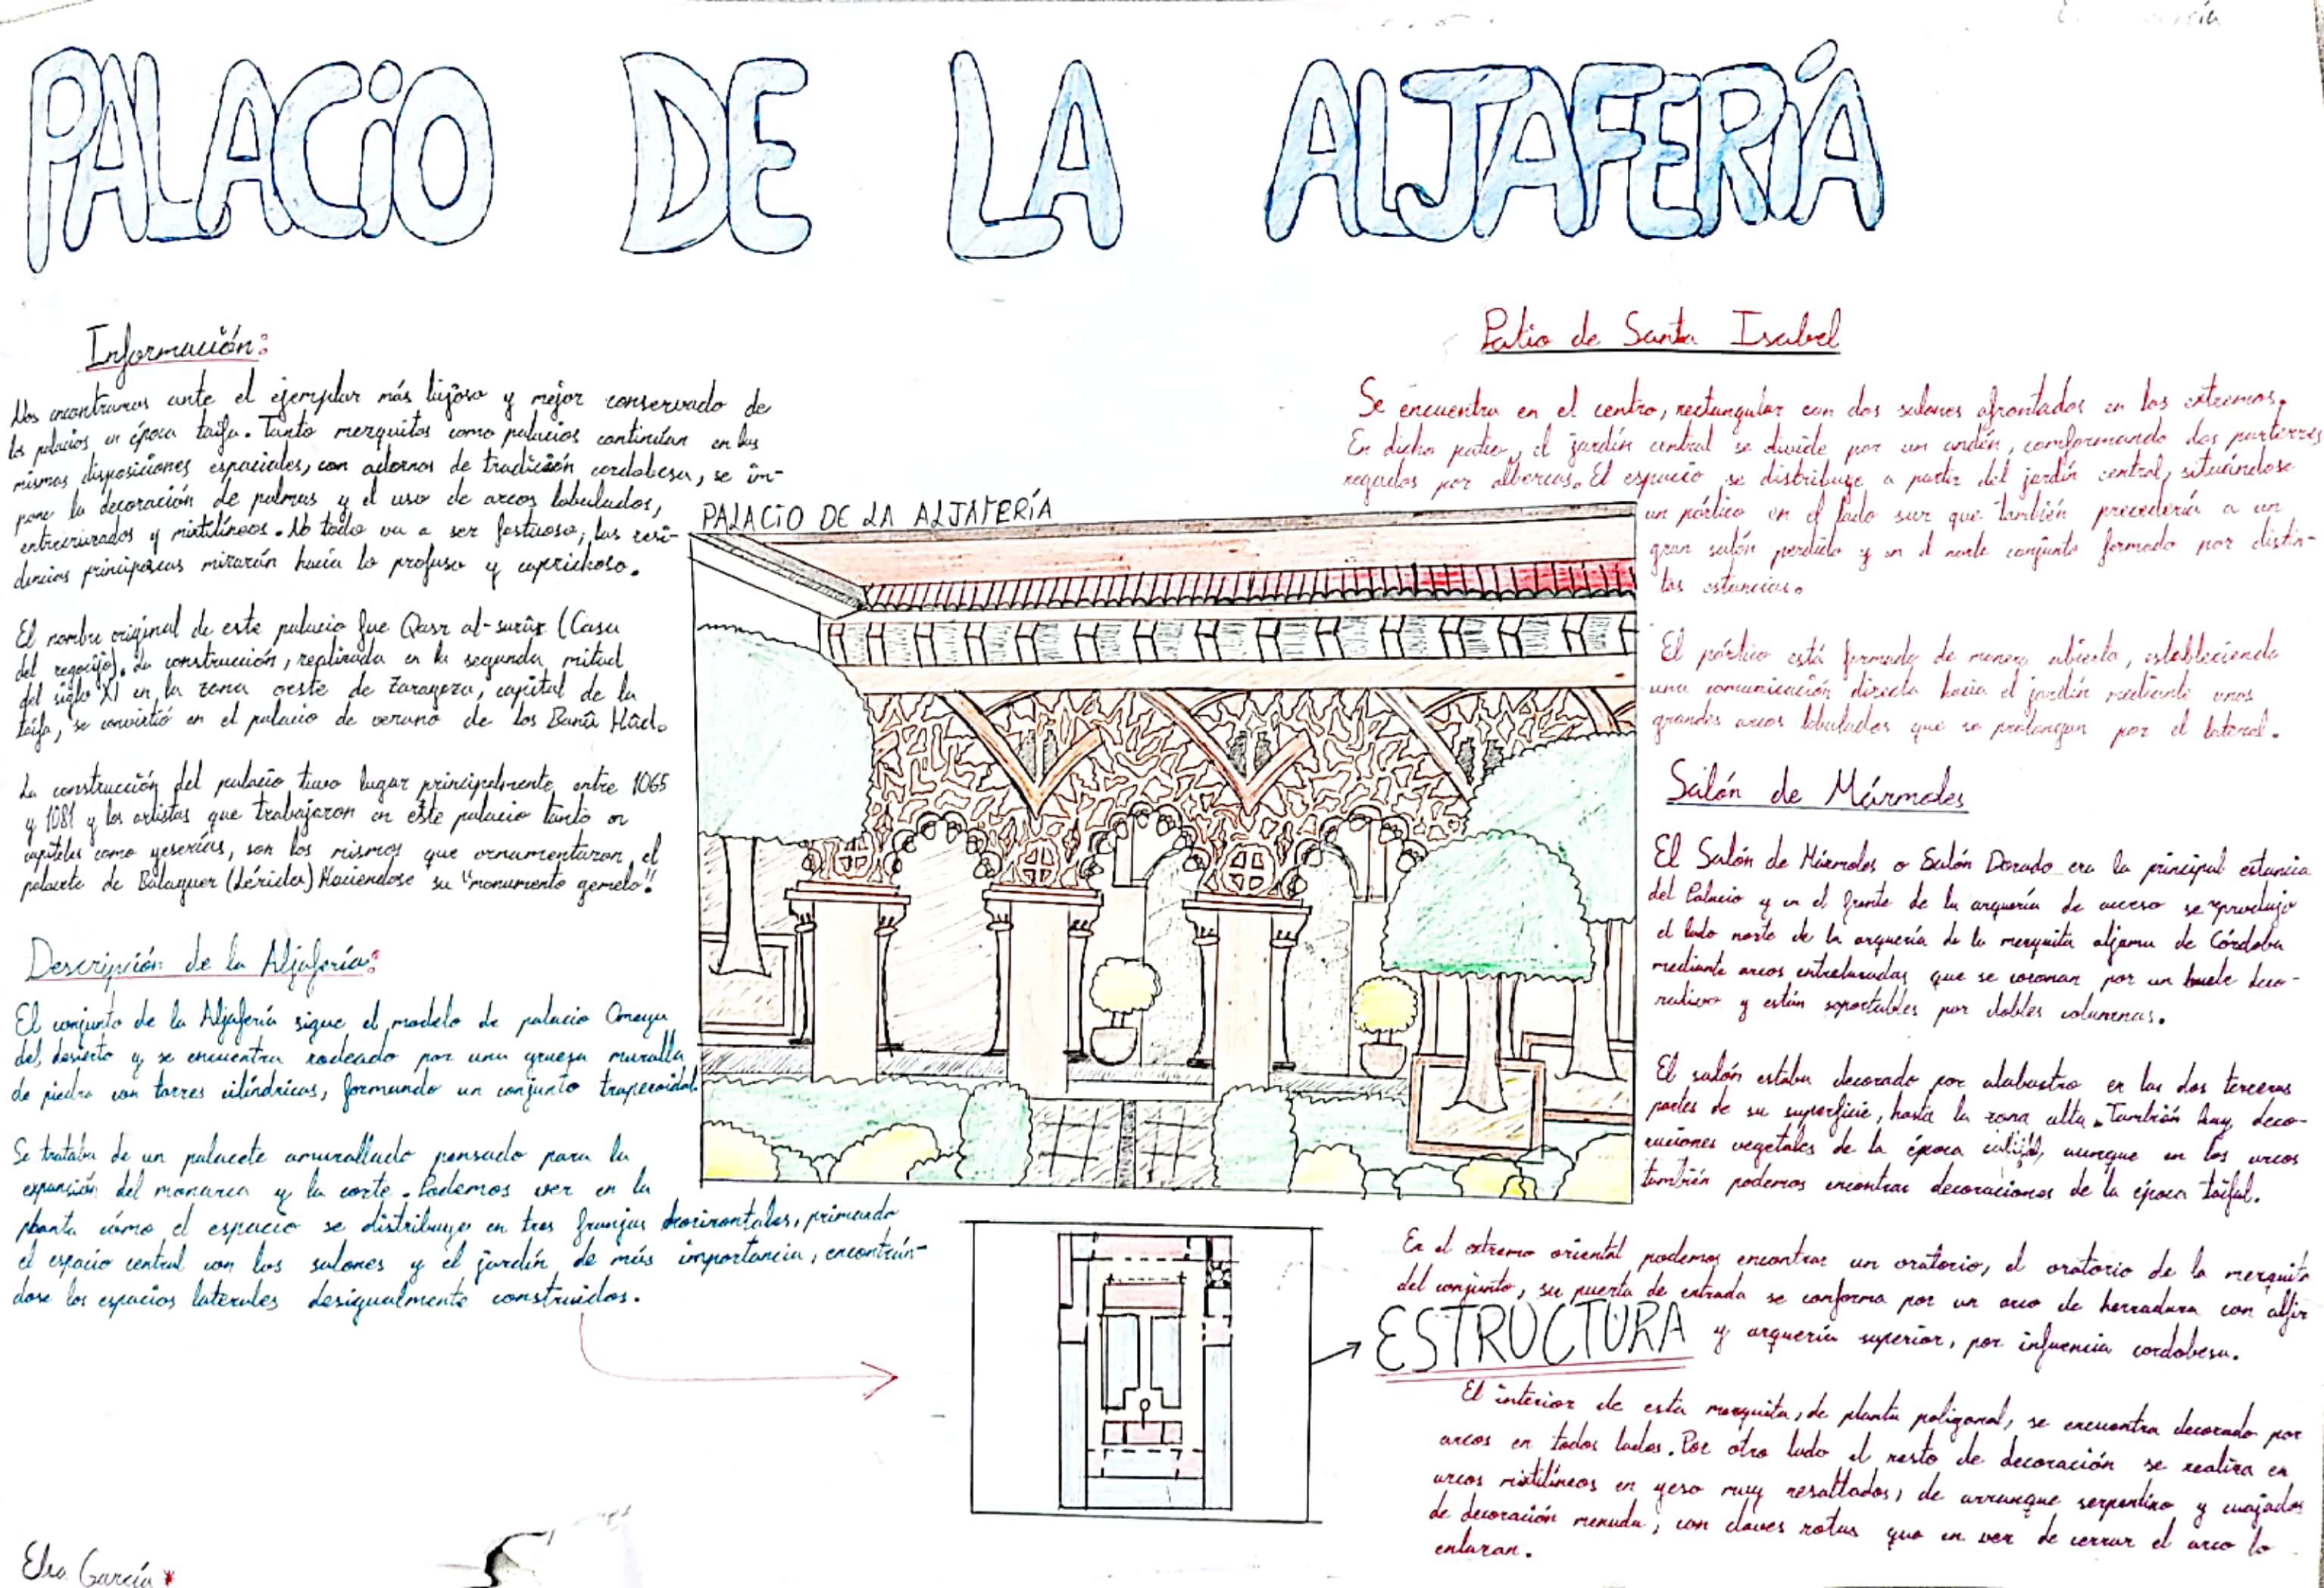 PALACIO DE LA ALJAFERÍA
Información:
Nos encontramos ante el ejemplar más lujoso y mejor conservado de
los palacios en época taifa. Tanto mezquitas como palacios continúan en las
mismas disposiciones espaciales, con adornos de tradición cordobesa, se im-
pone la decoración de palmas y el uso de arcos lobulados,
entrecruzados y mixtilíneos. No todo va a ser fastuoso, las resi-
dencias principescas mirarán hacia lo profuso y caprichoso.
El nombre original de este palacio fue Qasr al-surūr (Casa
del regocijo). La construcción, realizada en la segunda mitad
del siglo XI en la zona oeste de Zaragoza, capital de la
taifa, se convirtió en el palacio de verano de los Banū Hūd.
La construcción del palacio tuvo lugar principalmente entre 1065
y 1081 y los artistas que trabajaron en este palacio tanto en
capiteles como yeserías, son los mismos que ornamentaron el
palacete de Balaguer (Lérida) Haciendose su "monumento gemelo"
Descripción de la Aljafería:
El conjunto de la Aljafería sigue el modelo de palacio Omeya
del desierto y se encuentra rodeado por una gruesa muralla
de piedra con torres cilíndricas, formando un conjunto trapezoidal.
Se trataba de un palacete amurallado pensado para la
expansión del monarca y la corte. Podemos ver en la
planta cómo el espacio se distribuye en tres franjas horizontales, primando
el espacio central con los salones y el jardín de más importancia, encontrán-
dose los espacios laterales desigualmente construidos.
Elsa García
PALACIO DE LA ALJAFERÍA
Patio de Santa Isabel
Se encuentra en el centro, rectangular con dos salones afrontados en los extremos.
En dicho patio, el jardín central se divide por un andén, comformando dos parterres
regados por albercas. El espacio se distribuye a partir del jardín central, situándose
un pórtico en el lado sur que también precedería a un
gran salón perdido y en el norte conjunto formado por distin-
tas estancias.
El pórtico está formado de manera abierta, estableciendo
una comunicación directa hacia el jardín mediante unos
grandes arcos lobulados que se prolongan por el lateral.
Salón de Mármoles
El Salón de Mármoles o Salón Dorado era la principal estancia
del Palacio y en el frente de la arquería de acceso se reprodujo
el lado norte de la arquería de la mezquita aljama de Córdoba
mediante arcos entrelazados que se coronan por un deco-
rativo y están soportables por dobles columnas.
El salón estaba decorado por alabastro en las dos terceras
partes de su superficie, hasta la zona alta. También hay deco-
raciones vegetales de la época califal, aunque en los arcos
también podemos encontrar decoraciones de la época taifal.
En el extremo oriental podemos encontrar un oratorio, el oratorio de la mezquita
del conjunto, su puerta de entrada se conforma por un arco de herradura con alfiz
y arquería superior, por influencia cordobesa.
ESTRUCTURA
El interior de esta mezquita, de planta poligonal, se encuentra decorado por
arcos en todos lados. Por otro lado el resto de decoración se realiza en
arcos mixtilíneos en yeso muy resaltados, de arranque serpentino y cuajados
de decoración menuda, con claves rotas que en vez de cerrar el arco lo
enlazan.